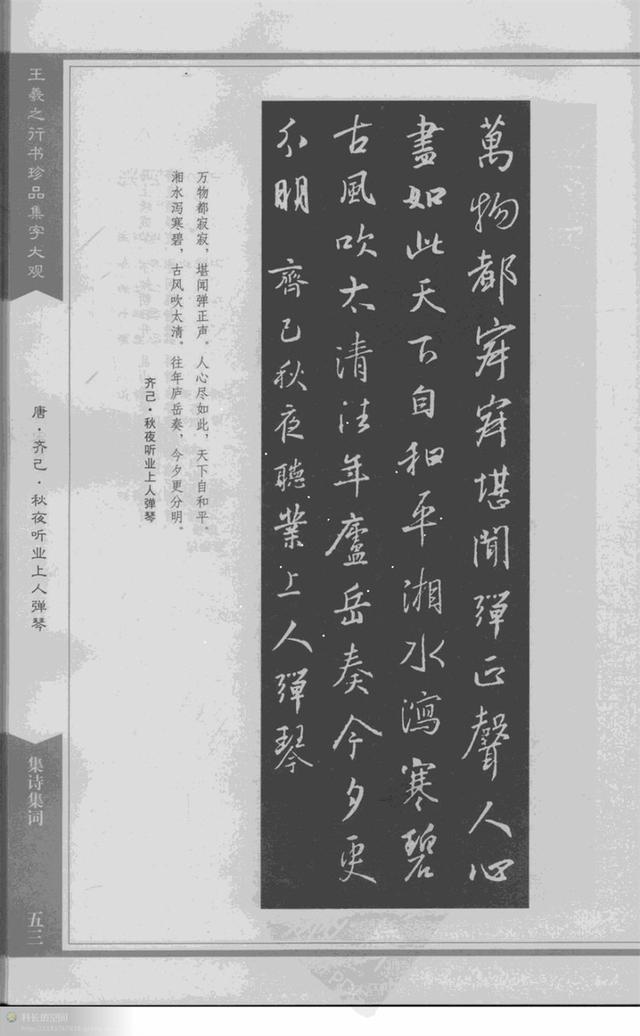 萬物都寂寂堪聞彈正聲人心
盡如此天下自和平湘水瀉寒碧
古風吹太清往年廬岳奏今夕更
分明 齊己秋夜聽業上人彈琴
万物都寂寂，堪闻弹正声。人心尽如此，天下自和平。
湘水泻寒碧，古风吹太清。往年庐岳奏，今夕更分明。
齐己·秋夜听业上人弹琴
王羲之行书珍品集字大观
唐·齐己·秋夜听业上人弹琴
集诗集词
五三
科长的空间